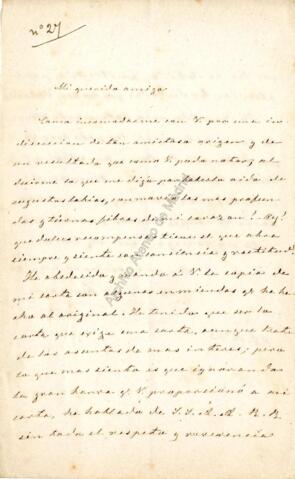 nº 27
Mi querida amiga
Como incomodarme con V. por una in
discrecion de tan amistoso origen y de
un resultado que como V. pudo notar, al
decirme lo que me dijo para oida de
augustos labios, conmovió las mas profun
das y tiernas fibras de mi corazon? ¡Ay!
que dulces recompensas tiene el que obra
siempre y siente con conciencia y rectitud!
He obedecido y mando á V. la copia de
mi carta con algunas enmiendas q. he he
cho al original. He tenido que ser lo
corto que exige una carta, aunque trate
de los asuntos de mas interes; pero
lo que mas siento es que ignorando
la gran honra q. V. proporcionó a mi
carta, he hablado de S.S. A.A. R.R.
sin todo el respeto y reverencia
Archivo Ateneo de Madrid